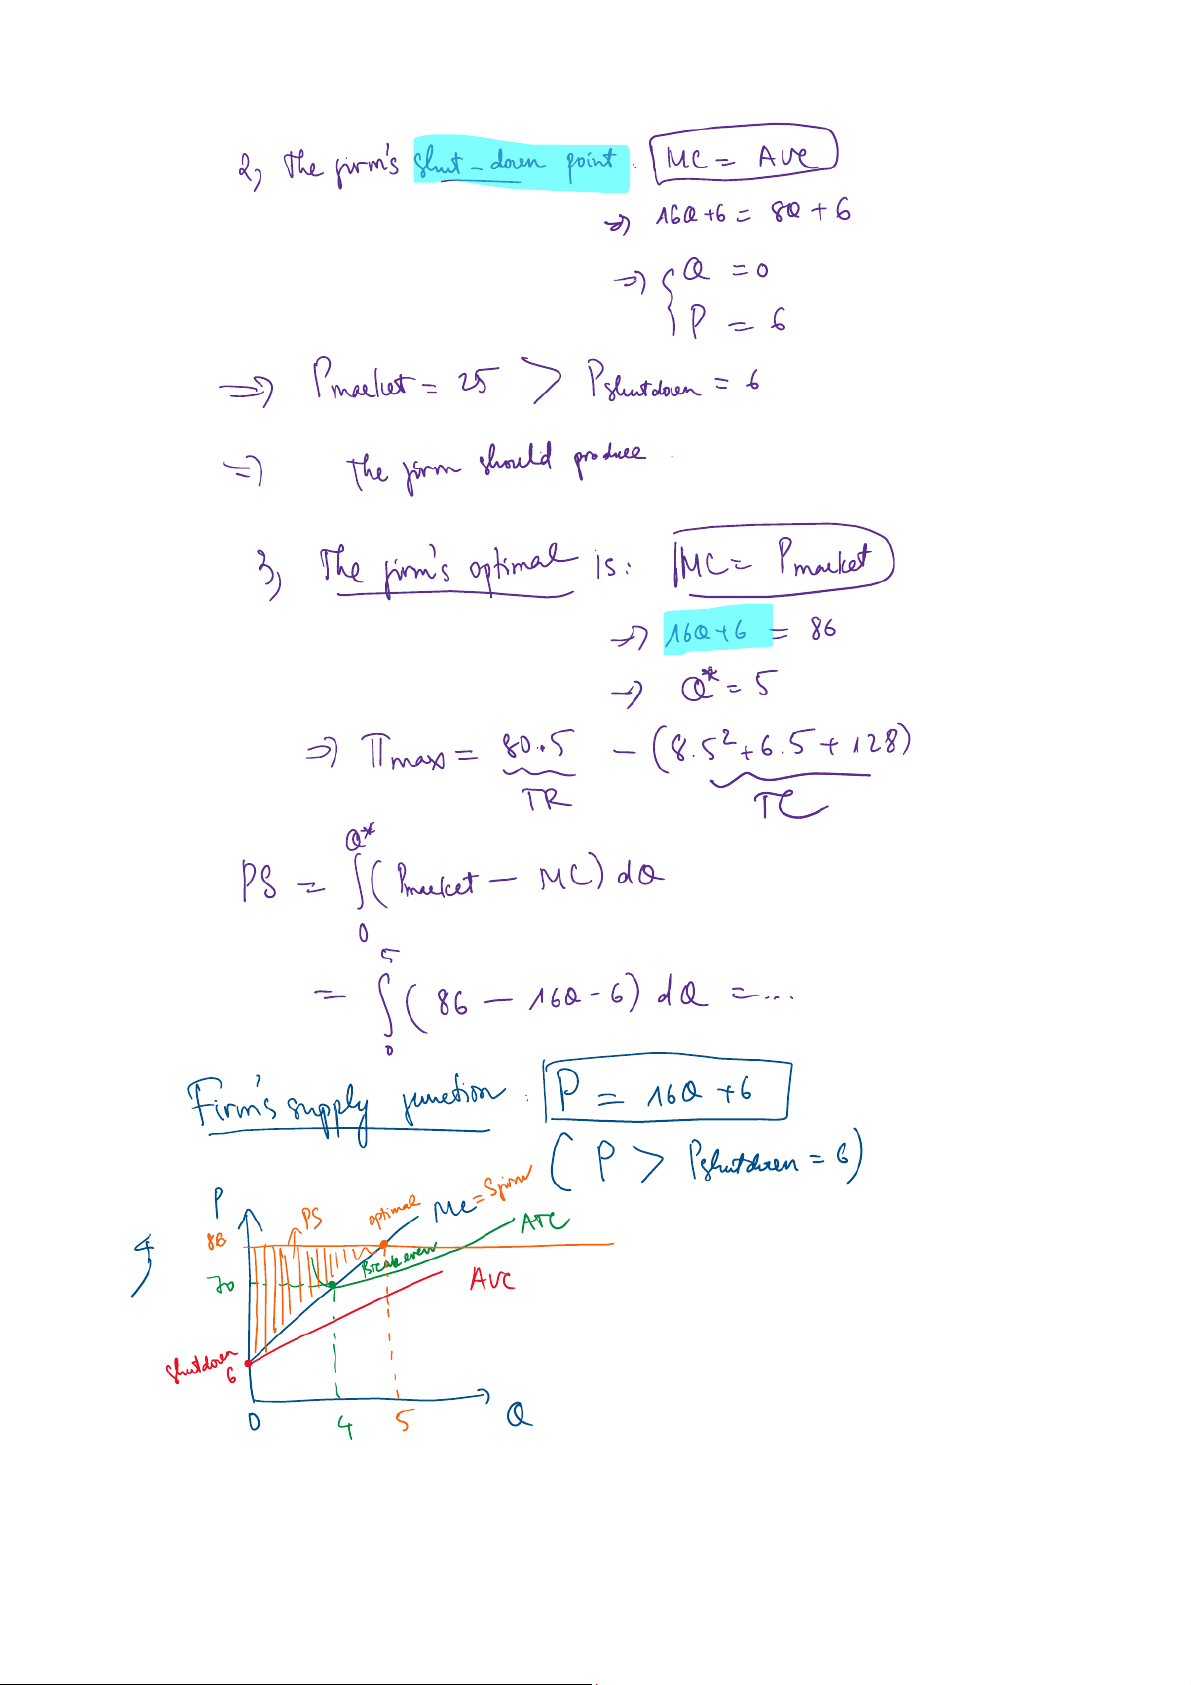 2, The firm's shut-down point : MC = AVC
=> 16Q+6 = 8Q+6
=> { Q = 0
P = 6
=> Pmarket = 25 > Pshutdown = 6
=> the firm should produce
3, The firm's optimal is: MC = Pmarket
=> 16Q+6 = 86
=> Q* = 5
=> πmax = 80.5 - (8.5²+6.5+128)
TR TC
PS = ∫₀^Q* (Pmarket - MC) dQ
= ∫₀⁵ (86 - 16Q - 6) dQ = ...
Firm's supply function : P = 16Q+6
(P > Pshutdown = 6)
P
86
70
shutdown
6
PS
optimal
MC = Sfirm
ATC
Breakeven
AVC
4,
0 4 5 Q